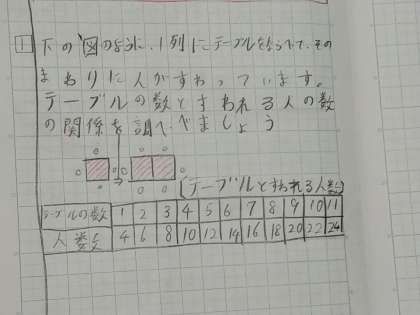 1 下の図のように、1列にテーブルをならべて、その
まわりに人がすわっています。
テーブルの数とすわれる人の数
の関係を調べましょう
(テーブルとすわれる人数)
テーブルの数 1 2 3 4 5 6 7 8 9 10 11
人数 4 6 8 10 12 14 16 18 20 22 24